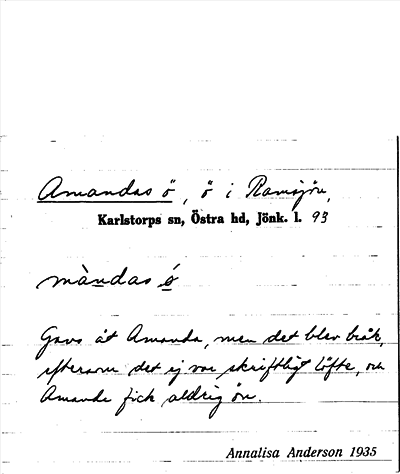 Amandas ö, ö i Ramsjön,
Karlstorps sn, Östra hd, Jönk. l. 93
màndas ó
Gavs åt Amanda, men det blev bråk,
eftersom det ej var skriftligt löfte, och
Amanda fick aldrig ön.
Annalisa Anderson 1935